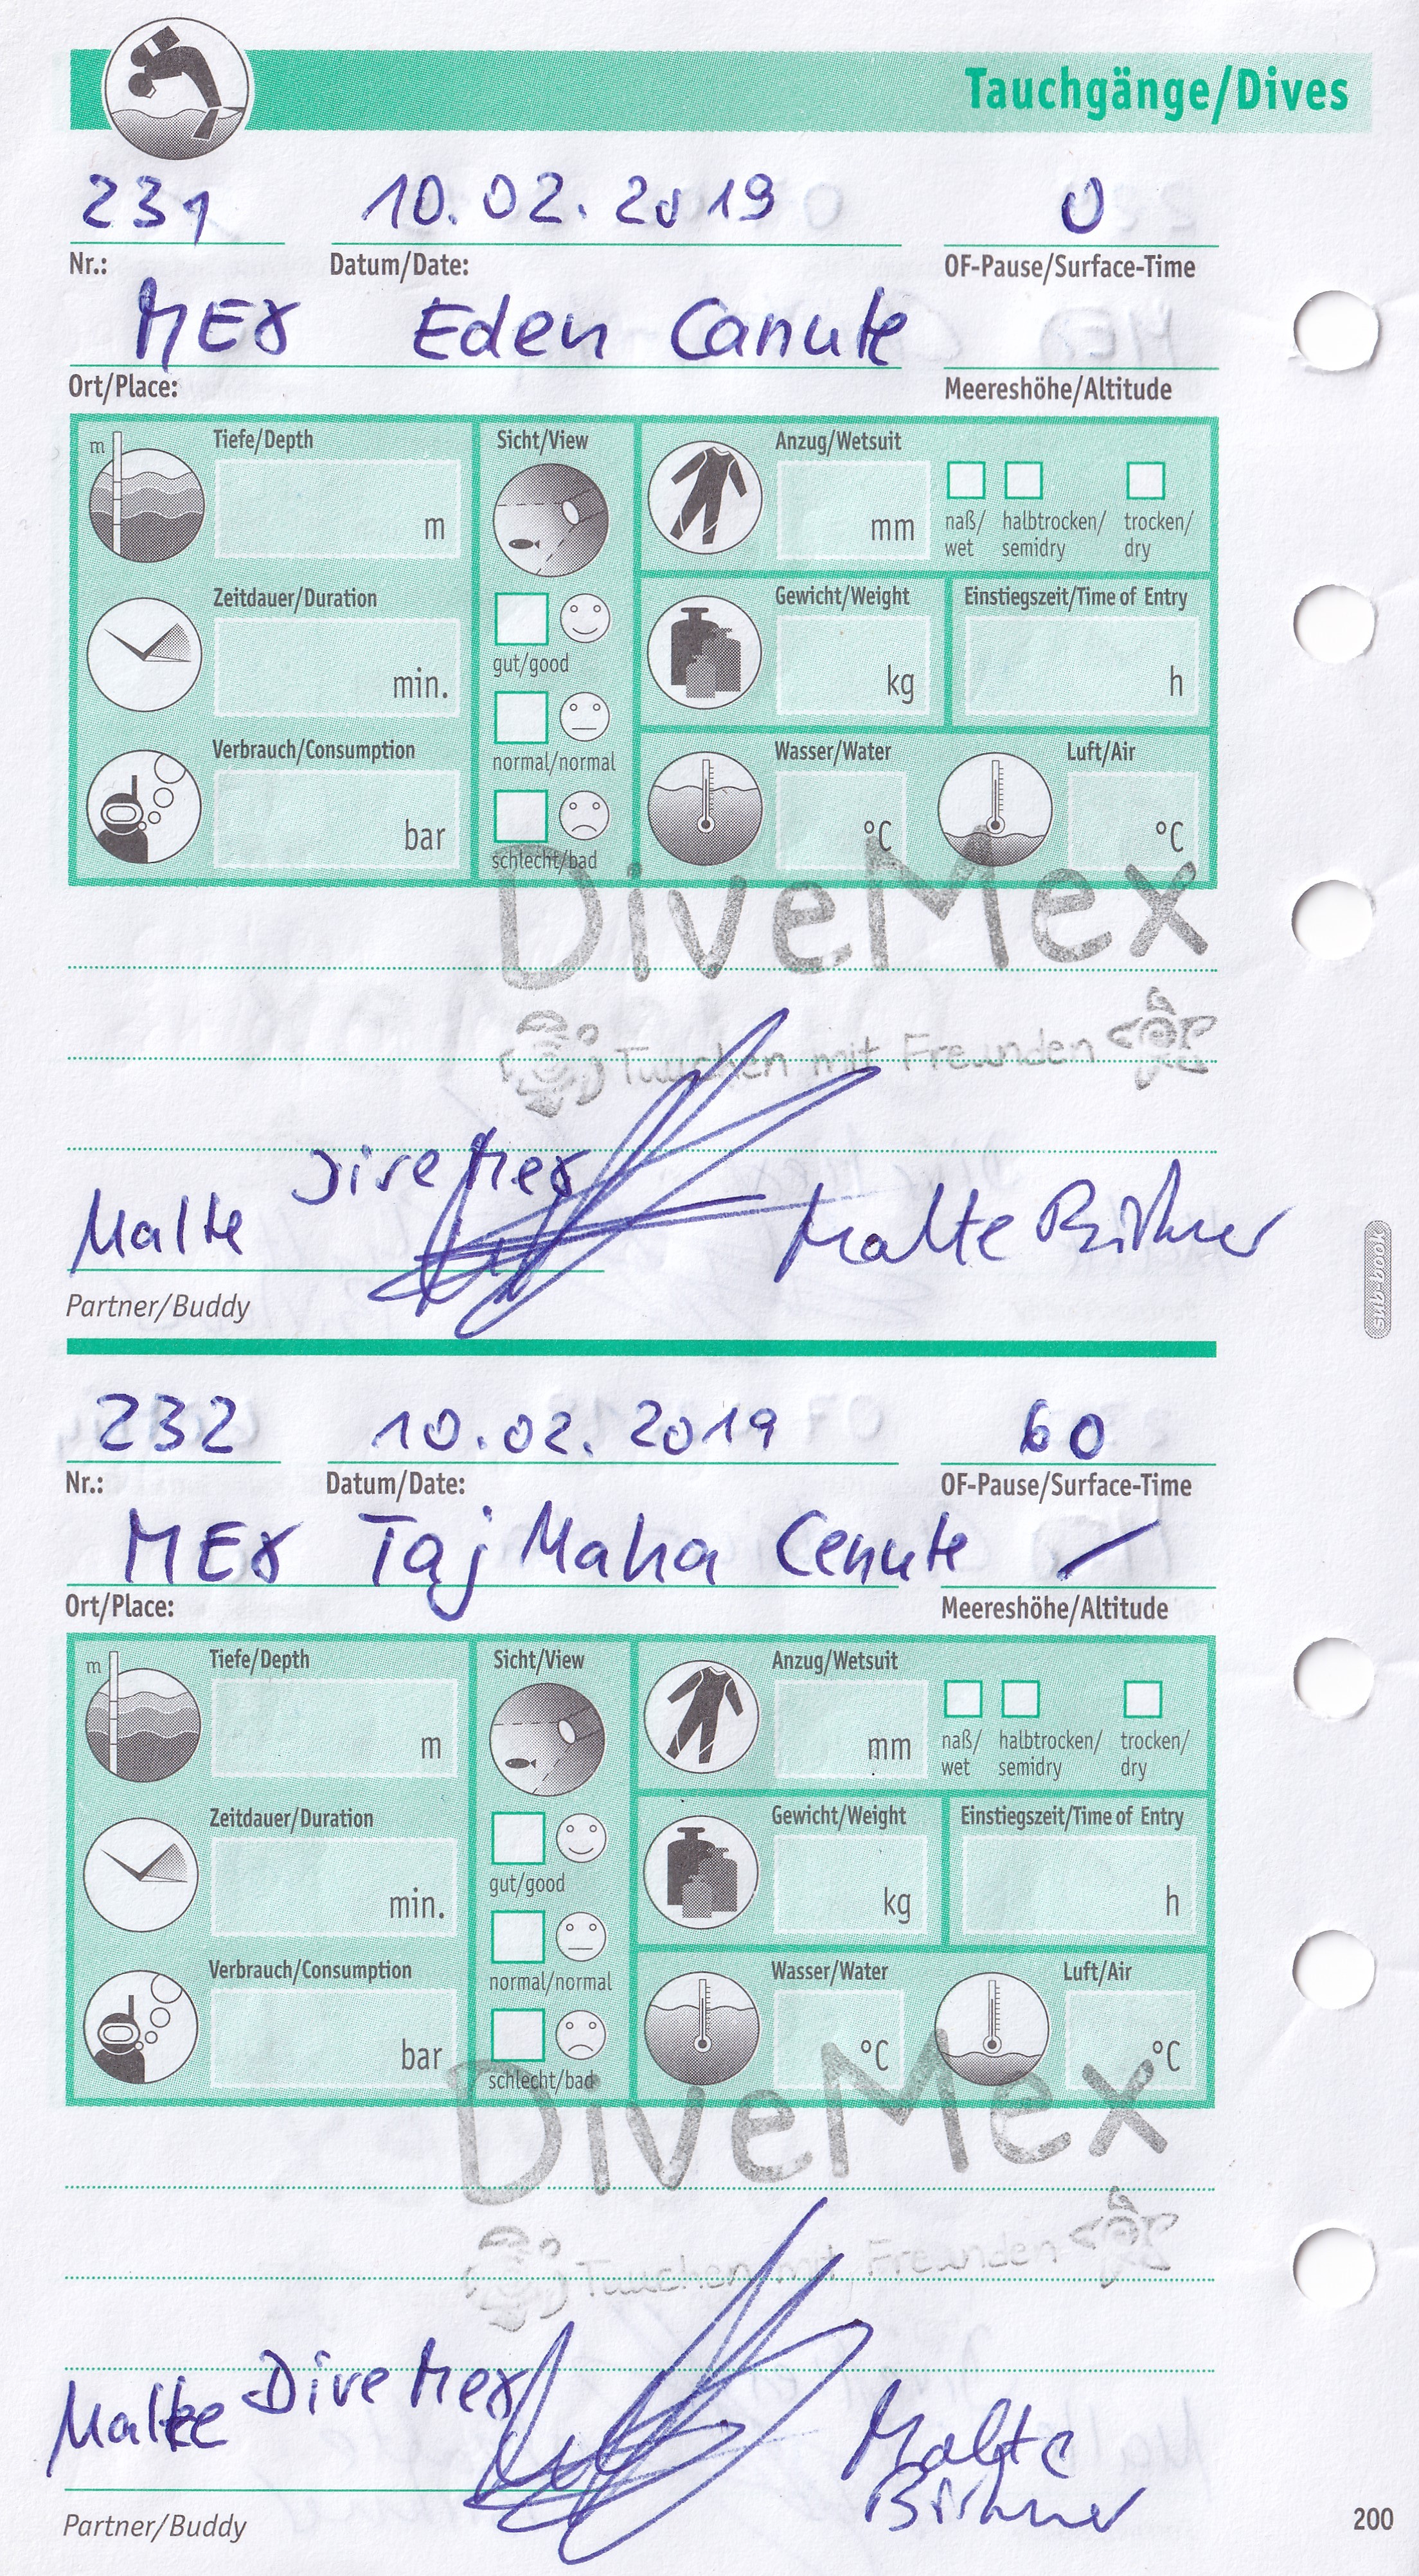 Tauchgänge/Dives
231 10.02.2019 0
Nr.: Datum/Date: OF-Pause/Surface-Time
MEX Eden Canute
Ort/Place: Meereshöhe/Altitude
m Tiefe/Depth Sicht/View Anzug/Wetsuit
m mm naß/ wet halbtrocken/ semidry trocken/ dry
Zeitdauer/Duration Gewicht/Weight Einstiegszeit/Time of Entry
min. gut/good kg h
Verbrauch/Consumption normal/normal Wasser/Water Luft/Air
bar °C °C
schlecht/bad
DiveMex
Tauchen mit Freunden
Dive Mex
Malte Malte
Partner/Buddy
sub-book
232 10.02.2019 60
Nr.: Datum/Date: OF-Pause/Surface-Time
MEX Taj Maha Cenute –
Ort/Place: Meereshöhe/Altitude
m Tiefe/Depth Sicht/View Anzug/Wetsuit
m mm naß/ wet halbtrocken/ semidry trocken/ dry
Zeitdauer/Duration Gewicht/Weight Einstiegszeit/Time of Entry
min. gut/good kg h
Verbrauch/Consumption normal/normal Wasser/Water Luft/Air
bar °C °C
schlecht/bad
DiveMex
Tauchen mit Freunden
Dive Mex
Malte Malte
Partner/Buddy
200